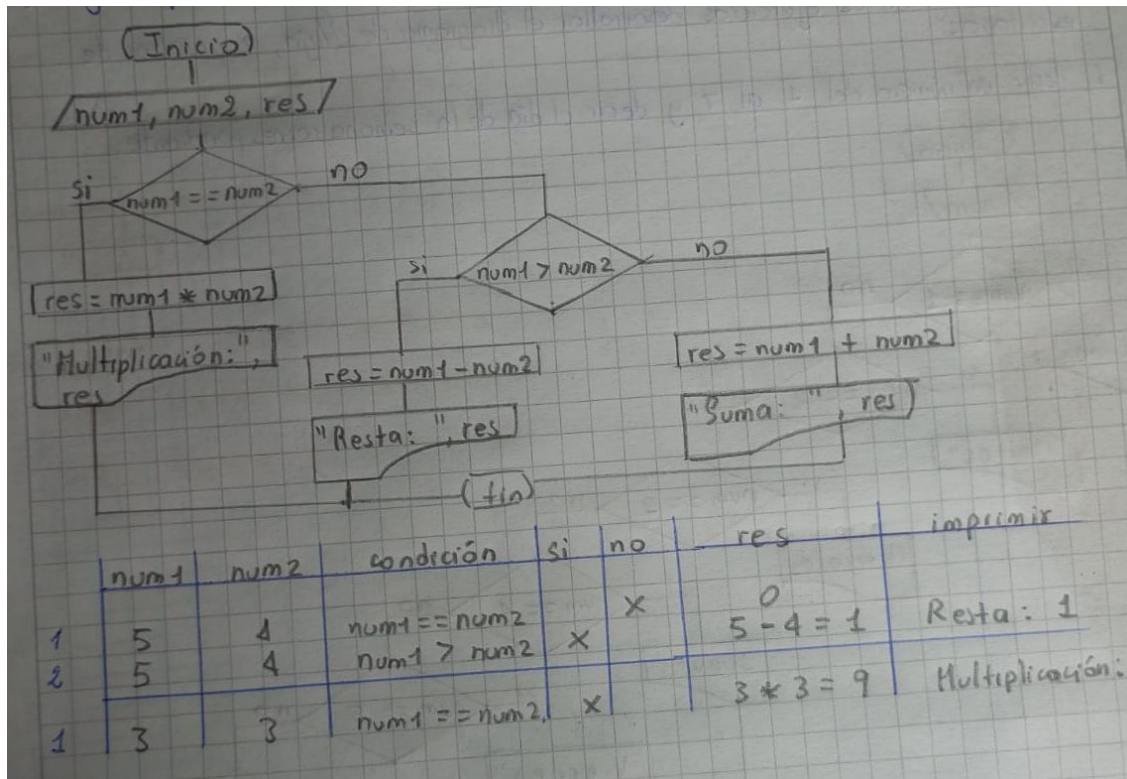 Inicio
num1, num2, res
num1 == num2
si
no
res = num1 * num2
"Multiplicación:",
res
num1 > num2
si
no
res = num1 - num2
"Resta: ", res
res = num1 + num2
"Suma: ", res
fin
num1 num2 condición si no res imprimir
1 5 4 num1 == num2 x 0
2 5 4 num1 > num2 x 5 - 4 = 1 Resta: 1
1 3 3 num1 == num2 x 3 * 3 = 9 Multiplicación: